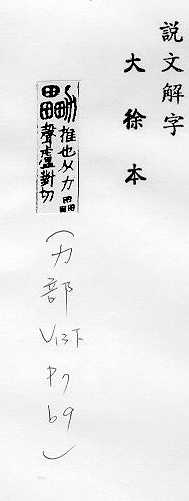 説文解字
大徐本
推也从力畾
聲盧對切
(力部 V13下 P769)